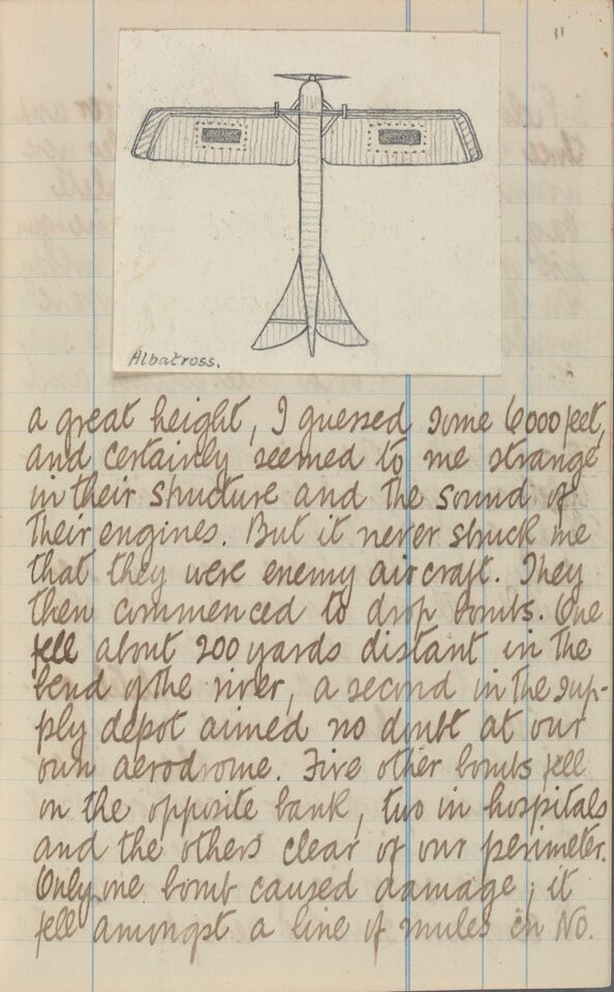 Albatross.
a great height, I guessed some 6000 feet,
and certainly seemed to me strange
in their structure and the sound of
their engines. But it never struck me
that they were enemy aircraft. They
then commenced to drop bombs. One
fell about 200 yards distant in the
bend of the river, a second in the sup-
ply depot aimed no doubt at our
own aerodrome. Five other bombs fell
on the opposite bank, two in hospitals
and the others clear of our perimeter.
Only one bomb caused damage; it
fell amongst a line of mules in No.